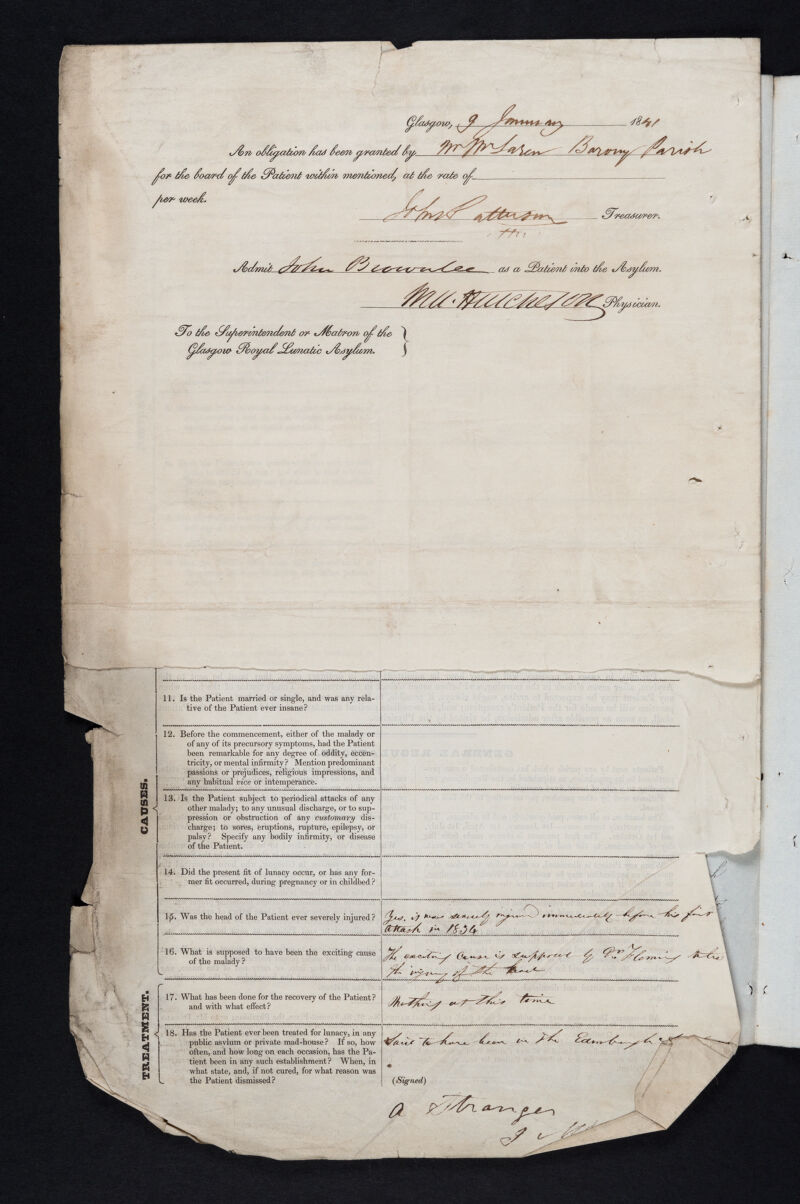 Glasgow, 9 January 1841
An obligation has been granted by Mr McLaren Barony Parish
for the board of the Patient within mentioned, at the rate of
per week.
John Patterson Treasurer.
Admit John Brownlee as a Patient into the Asylum.
Wm. Hutcheson Physician.
To the Superintendent or Matron of the
Glasgow Royal Lunatic Asylum.
11. Is the Patient married or single, and was any rela-
tive of the Patient ever insane?
12. Before the commencement, either of the malady or
of any of its precursory symptoms, had the Patient
been remarkable for any degree of oddity, eccen-
tricity, or mental infirmity? Mention predominant
passions or prejudices, religious impressions, and
any habitual vice or intemperance.
CAUSES.
13. Is the Patient subject to periodical attacks of any
other malady; to any unusual discharge, or to sup-
pression or obstruction of any customary dis-
charge; to sores, eruptions, rupture, epilepsy, or
palsy? Specify any bodily infirmity, or disease
of the Patient.
14. Did the present fit of lunacy occur, or has any for-
mer fit occurred, during pregnancy or in childbed?
15. Was the head of the Patient ever severely injured?
Yes, is was severely injured immediately before his first
attack in 1834
16. What is supposed to have been the exciting cause
of the malady?
The exciting cause is supposed by Dr Fleming to be
the injury of the head
TREATMENT.
17. What has been done for the recovery of the Patient?
and with what effect?
Nothing at this time
18. Has the Patient ever been treated for lunacy, in any
public asylum or private mad-house? If so, how
often, and how long on each occasion, has the Pa-
tient been in any such establishment? When, in
what state, and, if not cured, for what reason was
the Patient dismissed?
Said to have been in the Edinburgh
(Signed)
a Stranger